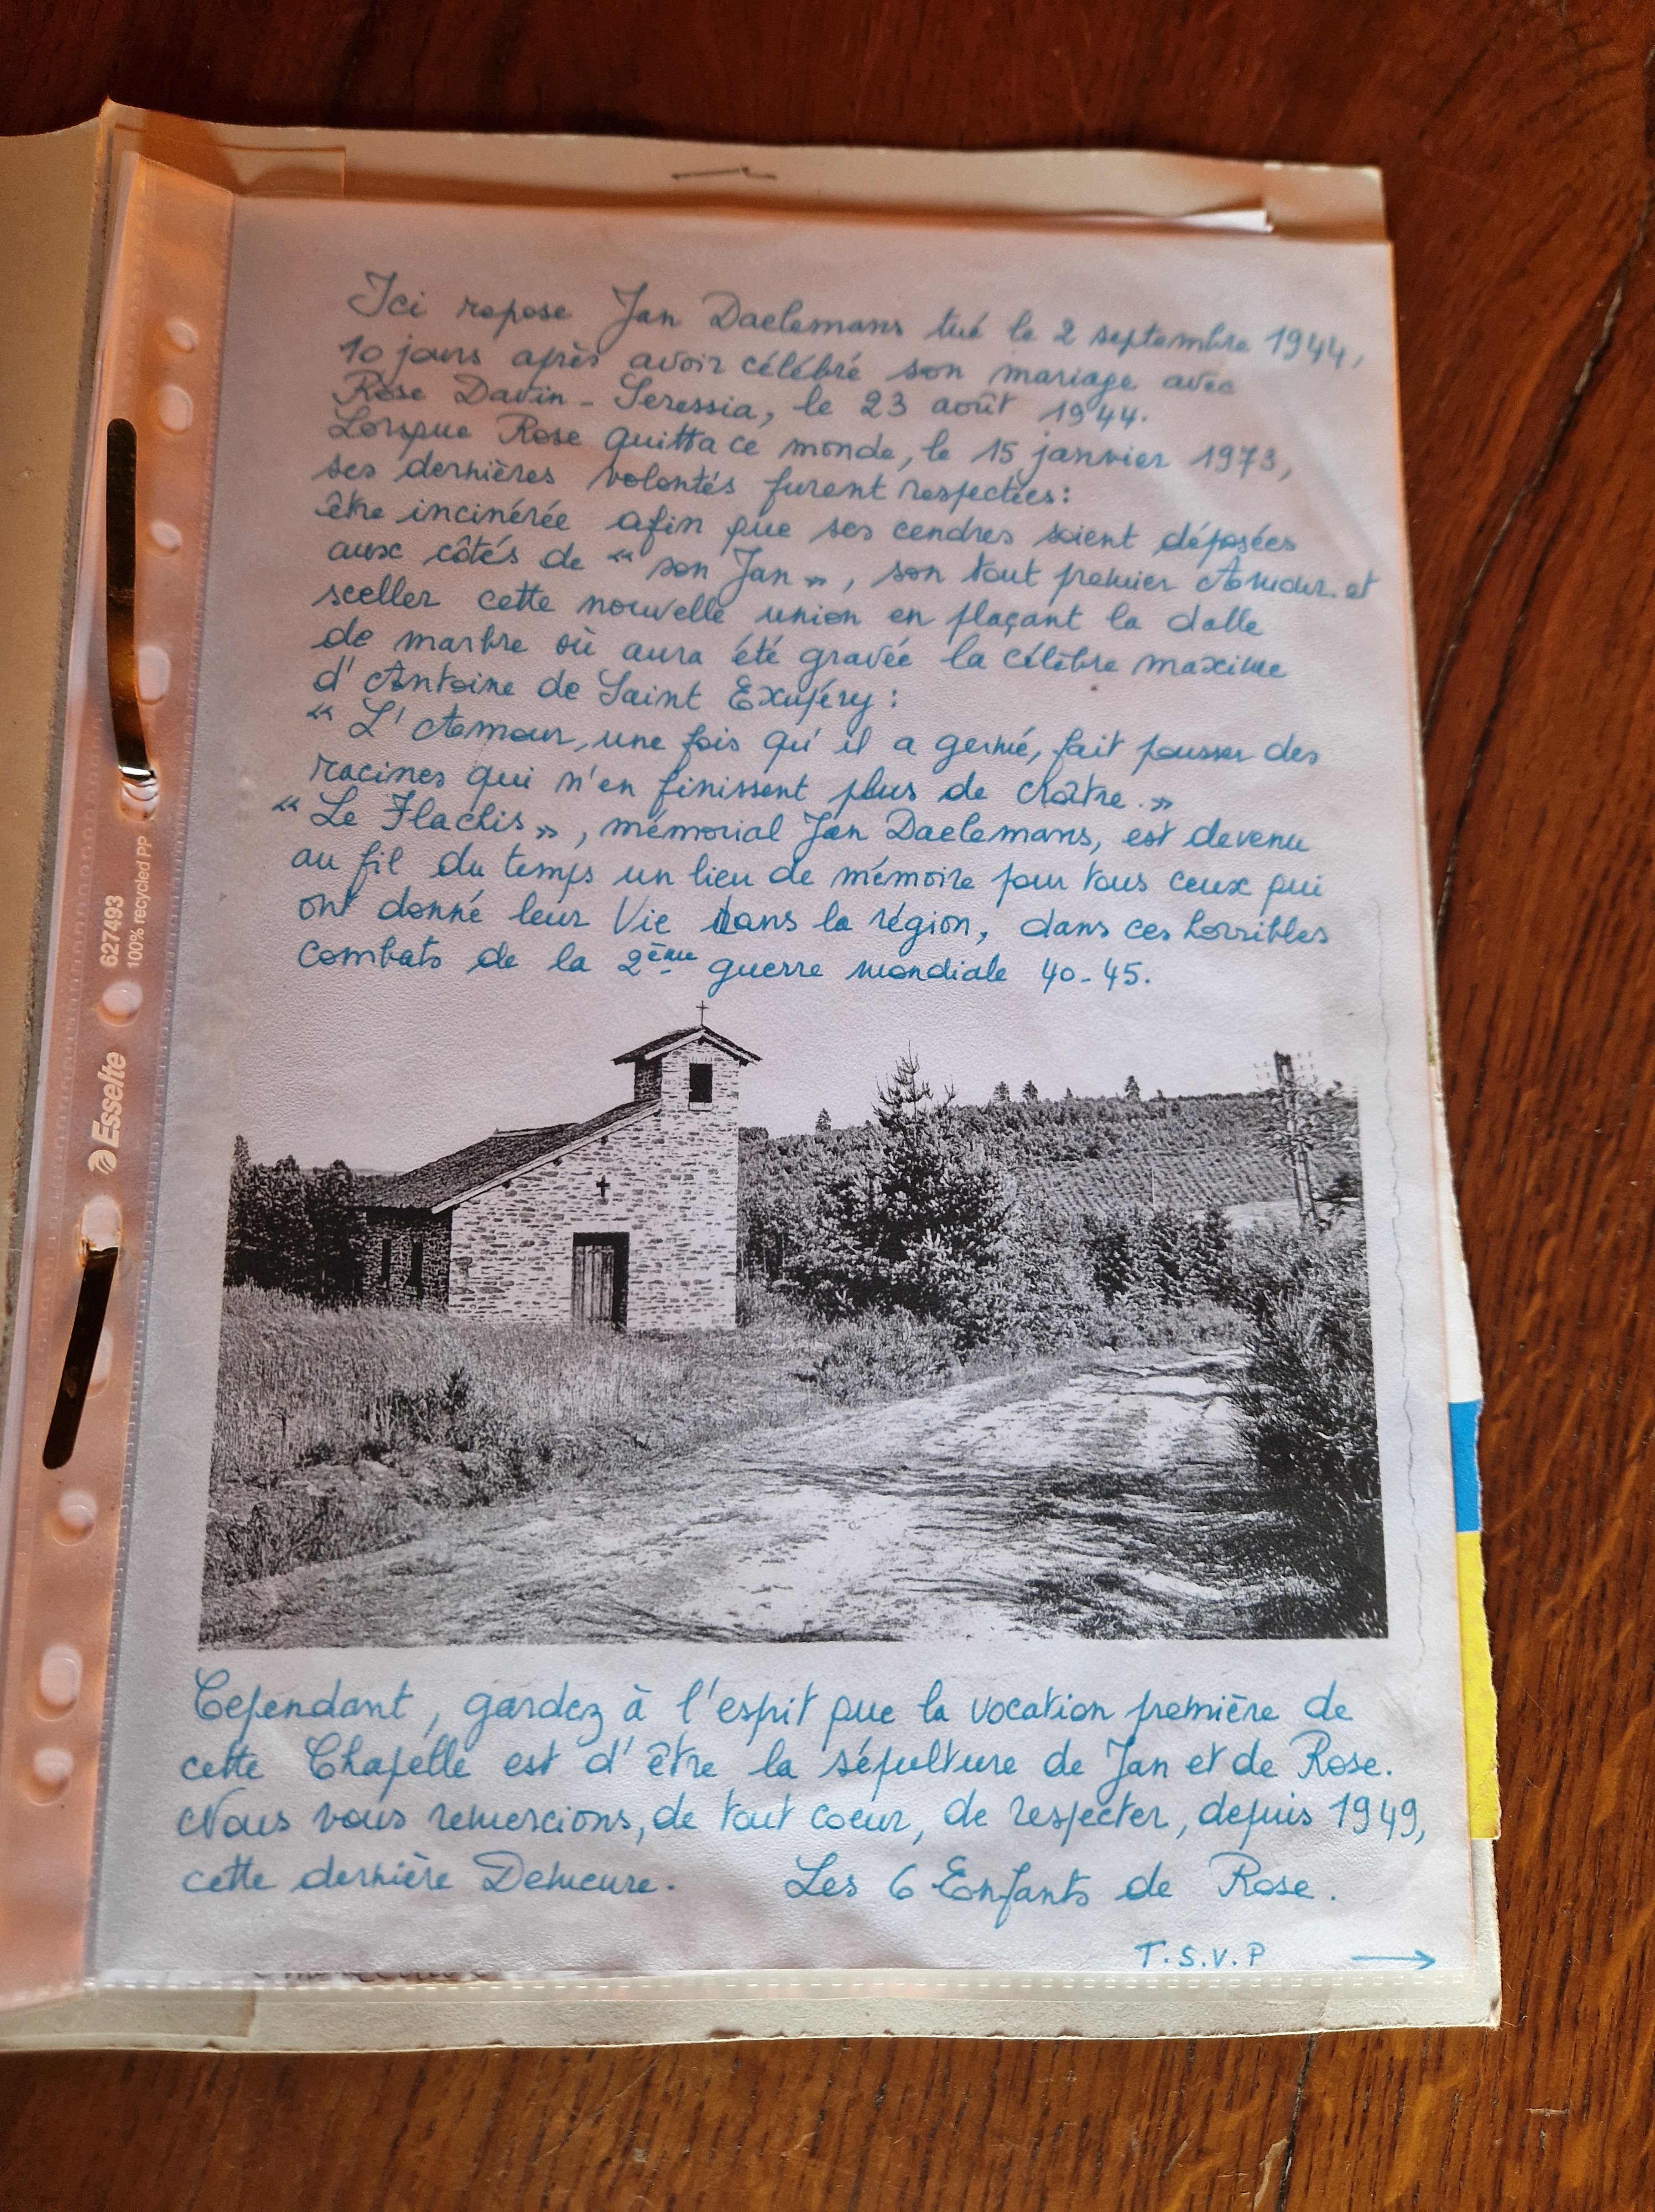 Ici repose Jan Daelemans tué le 2 septembre 1944,
10 jours après avoir célébré son mariage avec
Rose Davin - Seressia, le 23 août 1944.
Lorsque Rose quitta ce monde, le 15 janvier 1973,
ses dernières volontés furent respectées:
être incinérée afin que ses cendres soient déposées
aux côtés de « son Jan », son tout premier Amour. et
sceller cette nouvelle union en plaçant la dalle
de marbre où aura été gravée la célèbre maxime
d'Antoine de Saint Exupéry :
« L'Amour, une fois qu'il a germé, fait pousser des
racines qui n'en finissent plus de croître. »
« Le Flachis », mémorial Jan Daelemans, est devenu
au fil du temps un lieu de mémoire pour tous ceux qui
ont donné leur Vie dans la région, dans ces horribles
combats de la 2ème guerre mondiale 40-45.
Cependant, gardez à l'esprit que la vocation première de
cette Chapelle est d'être la sépulture de Jan et de Rose.
Nous vous remercions, de tout coeur, de respecter, depuis 1949,
cette dernière Demeure. Les 6 Enfants de Rose.
T.S.V.P →
Esselte
627493
100% recycled PP